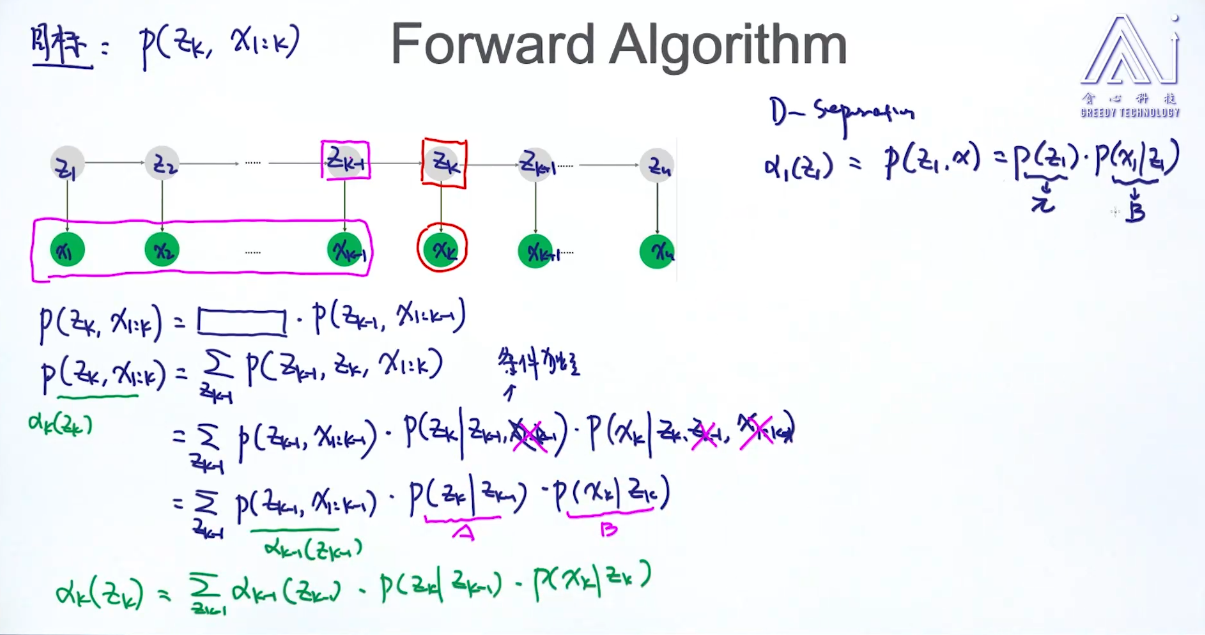 目标: p(zₖ, x₁:ₖ)
Forward Algorithm
贪心科技
GREEDY TECHNOLOGY
D-Separation
α₁(z₁) = p(z₁, x) = p(z₁) · p(x₁|z₁)
π B
z₁ z₂ ...... zₖ₋₁ zₖ zₖ₊₁ ...... zₙ
x₁ x₂ ...... xₖ₋₁ xₖ xₖ₊₁ ...... xₙ
p(zₖ, x₁:ₖ) = □ · p(zₖ₋₁, x₁:ₖ₋₁)
p(zₖ, x₁:ₖ) = ∑zₖ₋₁ p(zₖ₋₁, zₖ, x₁:ₖ)
条件独立
αₖ(zₖ)
= ∑zₖ₋₁ p(zₖ₋₁, x₁:ₖ₋₁) · p(zₖ|zₖ₋₁, x₁:ₖ₋₁) · p(xₖ|zₖ, zₖ₋₁, x₁:ₖ₋₁)
= ∑zₖ₋₁ p(zₖ₋₁, x₁:ₖ₋₁) · p(zₖ|zₖ₋₁) · p(xₖ|zₖ)
αₖ₋₁(zₖ₋₁) A B
αₖ(zₖ) = ∑zₖ₋₁ αₖ₋₁(zₖ₋₁) · p(zₖ|zₖ₋₁) · p(xₖ|zₖ)